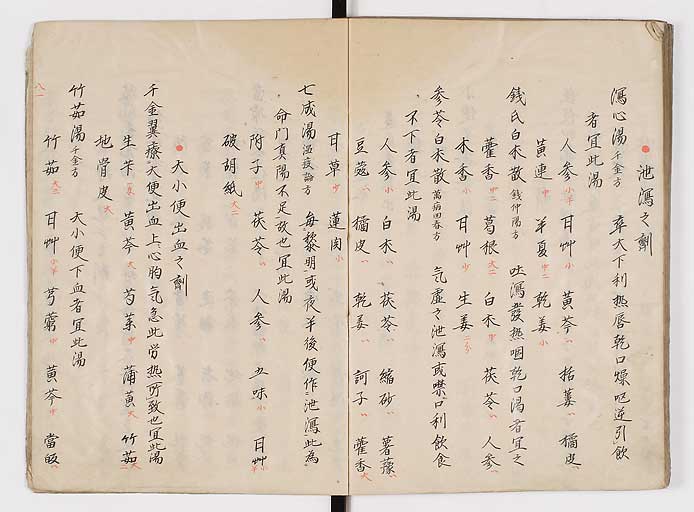 泄瀉之劑
瀉心湯 千金方 卒大下利熱唇乾口燥呕逆引飲
者宜此湯
人参 小半 甘艸 小 黄芩 〃 括蔞 〃 橘皮 〃
黄連 中 半夏 中二 乾姜 小
錢氏白朮散 錢仲陽方 吐瀉發熱咽乾口渇者宜之
藿香 中二 葛根 大二 白朮 中 茯苓 〃 人参 〃
木香 小 甘艸 少 生姜 二分
参苓白朮散 萬病回春方 氣虚之泄瀉或噤口利飲食
不下者宜此湯
人参 小 白朮 〃 茯苓 〃 縮砂 〃 薯蕷 〃
豆蔲 〃 橘皮 〃 乾姜 〃 訶子 〃 藿香 大
甘草 少 蓮肉 小
七成湯 温疫論方 每黎明或夜半後便作泄瀉此為
命門真陽不足故也宜此湯
附子 中 茯苓 〃 人参 〃 五味 小 甘艸 小半
破胡紙 大二
大小便出血之劑
千金翼療大便出血上心胸氣急此労熱所致也宜此湯
生芐 黄芩 大 芍薬 中 蒲黄 大 竹茹 大
地骨皮 大
竹茹湯 千金方 大小便下血者宜此湯
竹茹 大二 甘艸 小半 芎藭 中 黄芩 中 當皈 〃
八一